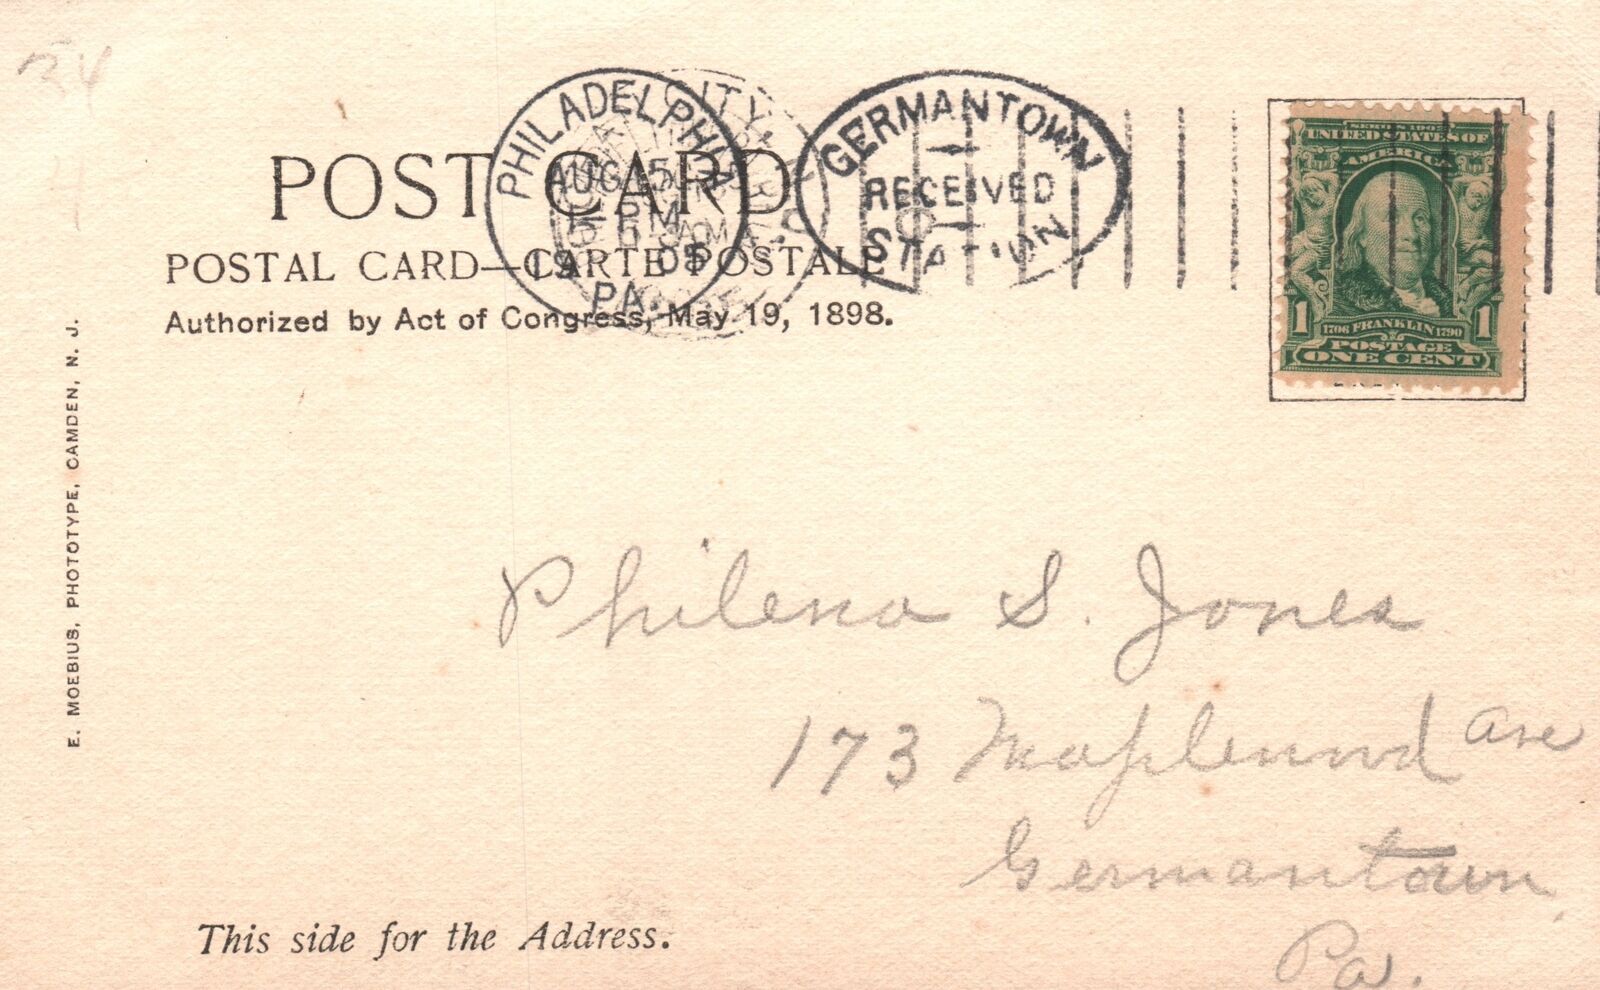 34
POST CARD
POSTAL CARD—CARTE POSTALE
Authorized by Act of Congress, May 19, 1898.
PHILADELPHIA
AUG 5
PM
1905
PA.
CITY
GERMANTOWN
RECEIVED
STATION
SERIES 1902
UNITED STATES OF
AMERICA
1 1706 FRANKLIN 1790 1
POSTAGE
ONE CENT
E. MOEBIUS, PHOTOTYPE, CAMDEN, N. J.
Philena S. Jones
173 Maplewood Ave
Germantown
Pa.
This side for the Address.